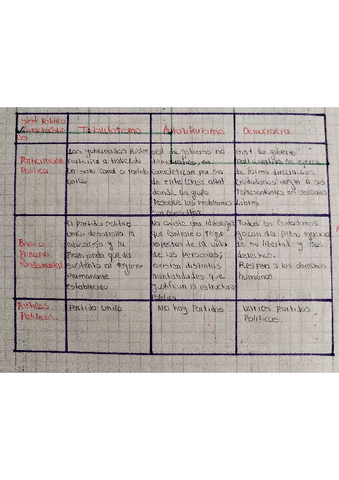 Sist. Político
Totalitarismo
Autoritarismo
Democracia
Participación
Política
Los gobernados
participar a través del
un solo canal o partido
único
sist. de gobierno no
democrático, se
caracterizan por ser
de elite (clase alta)
donde un grupo
resuelve los problemas
sin consultar
sist. de gobierno
Participativo, se ejerce
de forma directa, los
ciudadanos eligen a sus
representantes en elecciones
libres
Primario
Fundamental
El Partido político
único desarrolla la
ideología y la
que da
sustento al régimen
establecido
No existe una ideología
que controle o rige
aspectos de la vida
de las personas,
existen distintas
mentalidades que
justifican la estructura
Política
Todos los ciudadanos
gozan de pleno ejercicio
de su libertad y sus
derechos.
Respeto a los derechos
humanos
Partidos
Políticos
Partido único
NO hay Partidos
varios partidos
Políticos